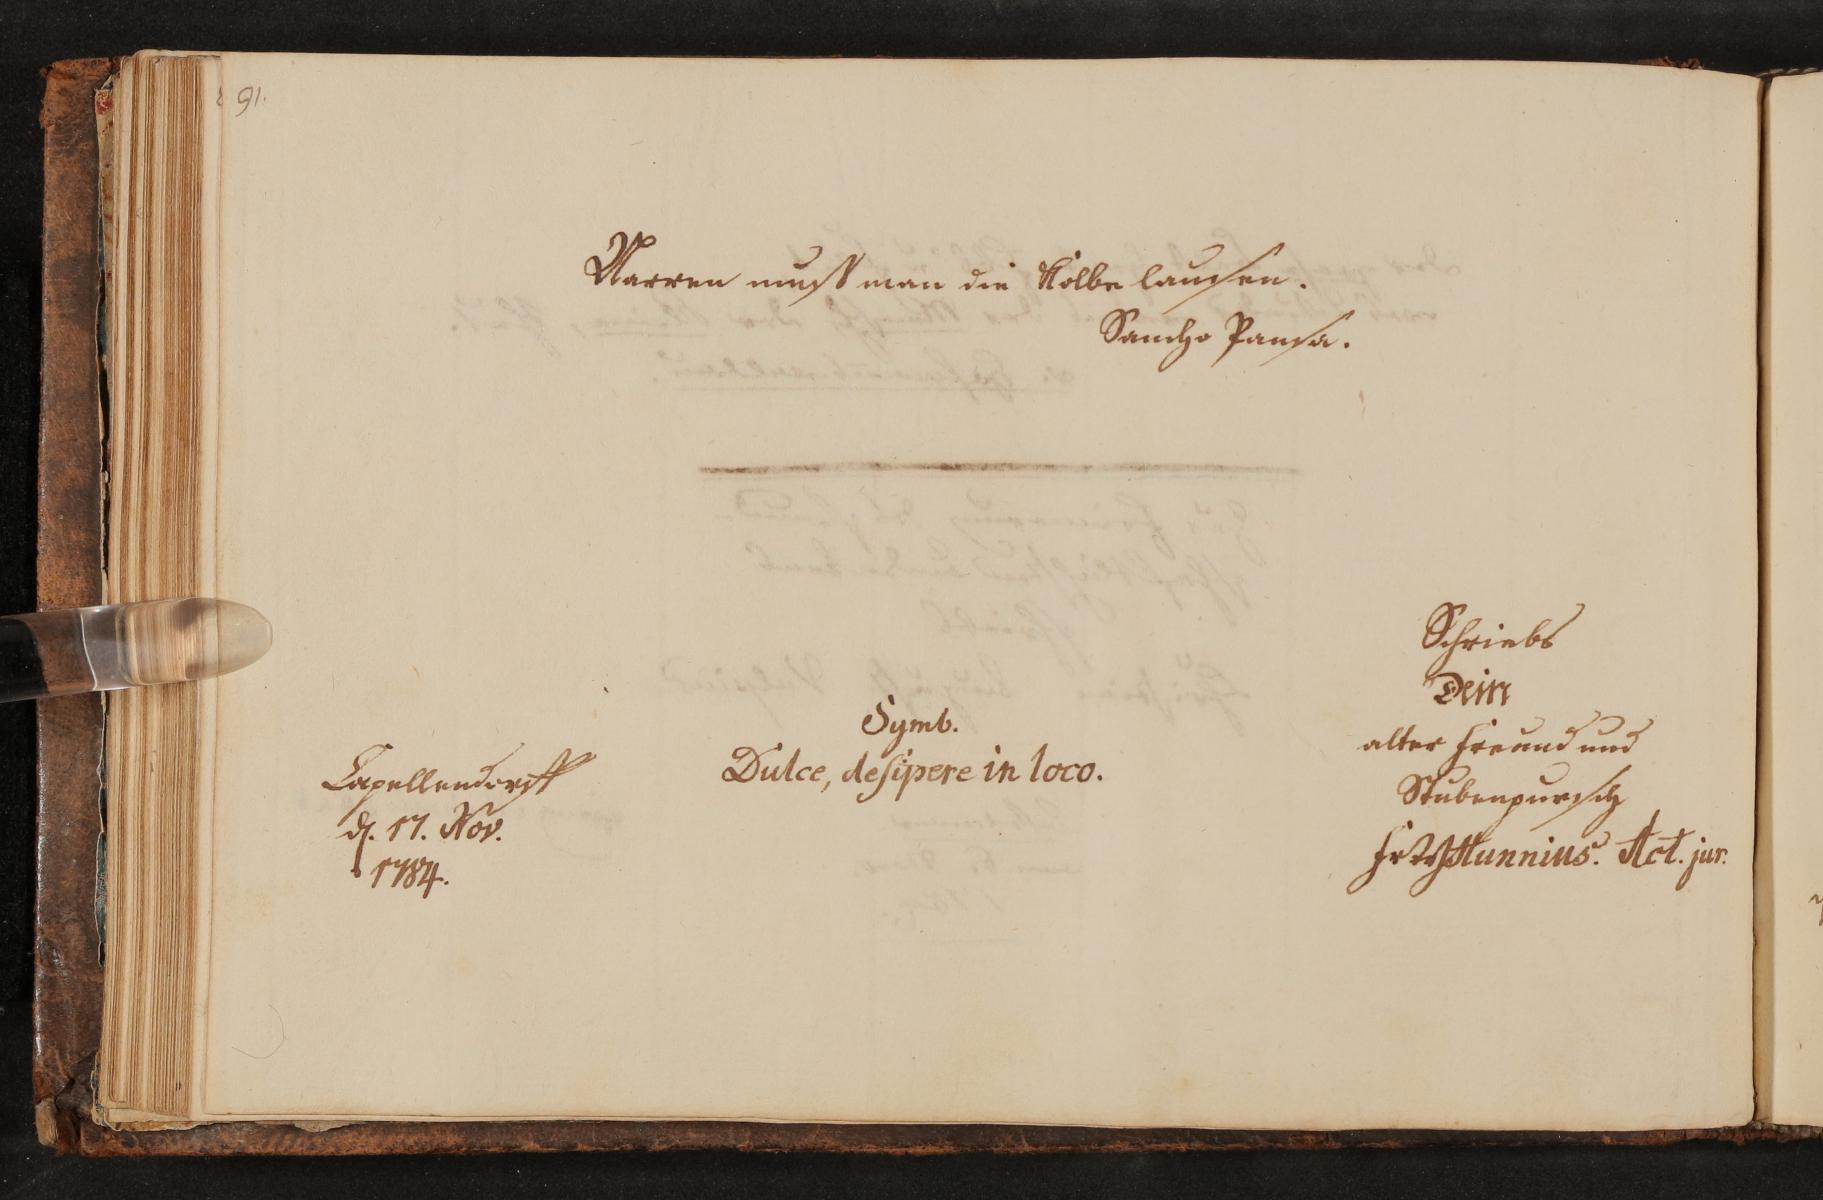 91.
Narren muß man die Kolbe lausen.
Sancho Pansa.
Schriebs
Dein
alter Freund und
Stubenpursch
Hunnius. Act. jur.
Symb.
Dulce, desipere in loco.
Capellendorff
d. 17. Nov.
1784.